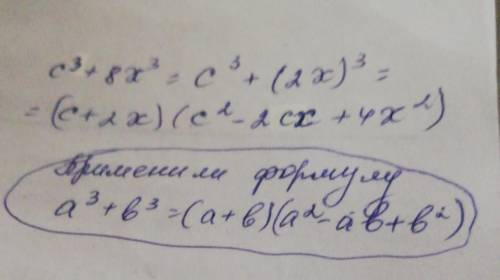 c³ + 8x³ = c³ + (2x)³ =
= (c + 2x) (c² - 2cx + 4x²)
Применили формулу
a³ + b³ = (a + b)(a² - ab + b²)